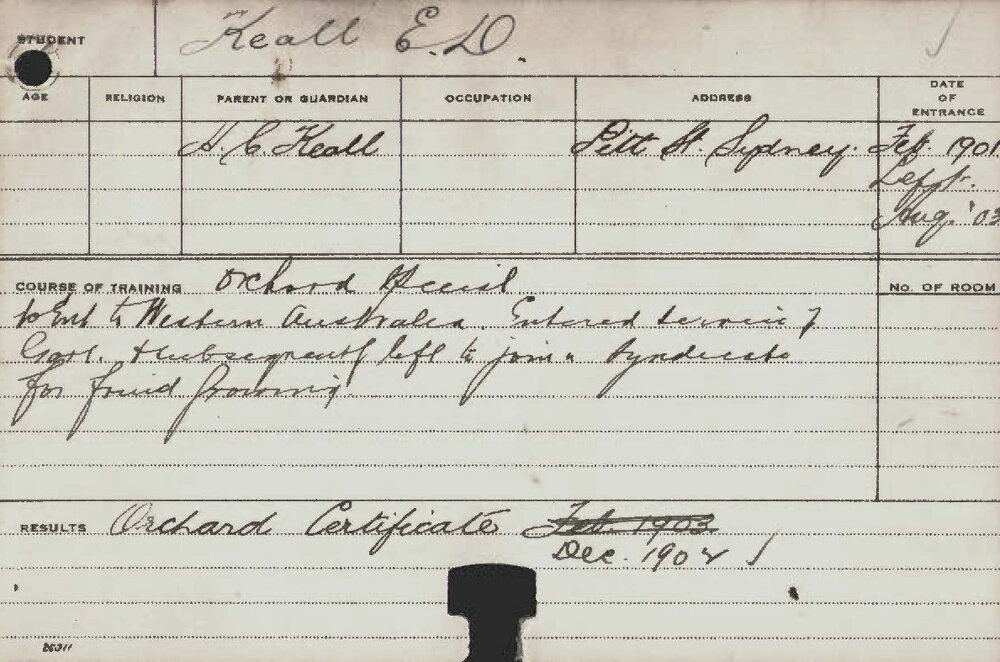 STUDENT Keall E.D.
AGE RELIGION PARENT OR GUARDIAN OCCUPATION ADDRESS DATE OF ENTRANCE
H. C. Keall Pitt St. Sydney. Feb. 1901
Left.
Aug. '03
COURSE OF TRAINING Orchard Special
No. OF ROOM
Went to Western Australia. Entered service of
Govt. & subsequently left to join a syndicate
for fruit growing.
RESULTS Orchard Certificate Feb. 1903
Dec. 1902